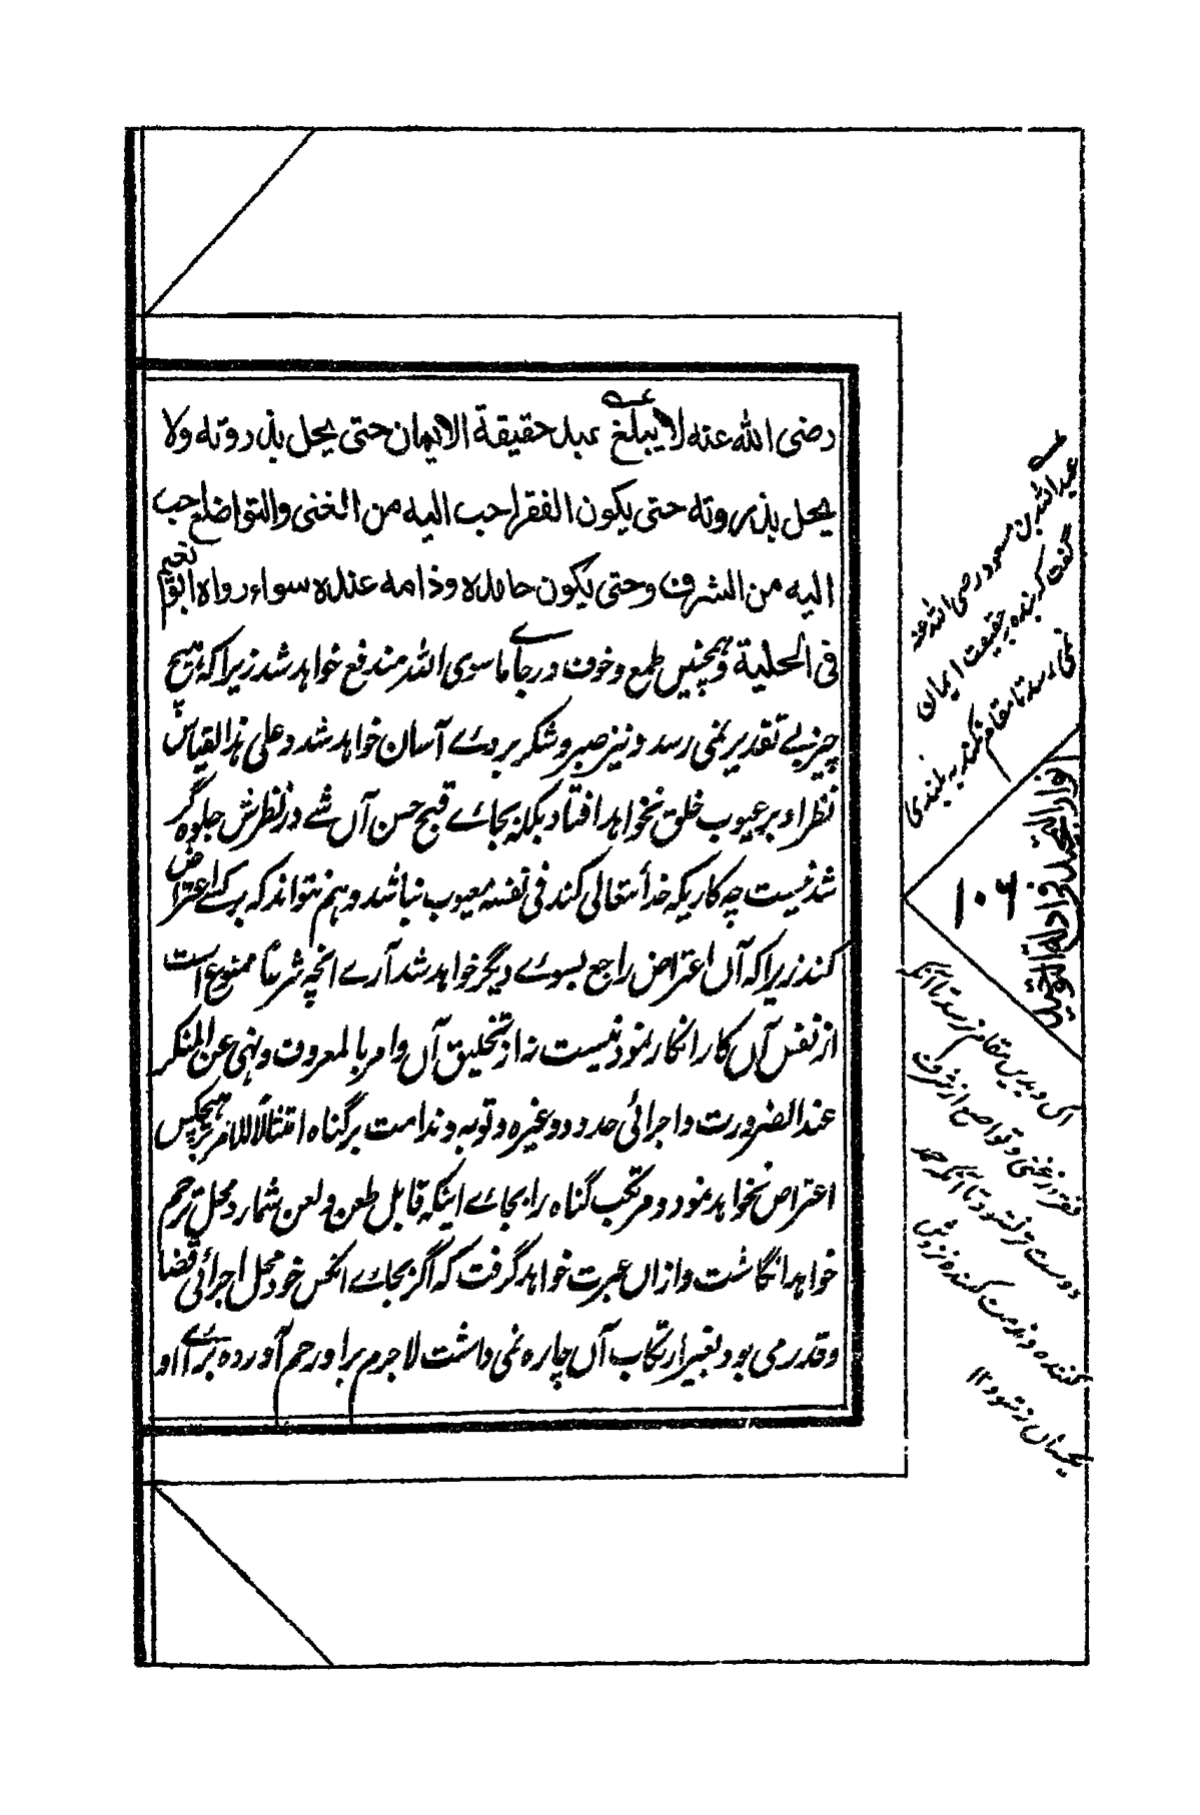 رضی الله عنه لا یبلغ عبد حقیقة الایمان حتی یحل بذروته ولا
یحل بذروته حتی یکون الفقر احب الیه من الغنی والتواضع احب
الیه من الشرف وحتی یکون حامده وذامه عنده سواء رواه ابو نعیم
فی الحلیة وهمچنیں طمع وخوف ورجاے ماسوی الله مندفع خواهد شد زیراکه هیچ
چیز بے تقدیر نمی رسد ونیز صبر وشکر بروے آسان خواهد شد وعلی هذا القیاس
نظر او بر عیوب خلق نخواهد افتاد بلکه بجاے قبح حسن آں شے در نظرش جلوه گر
شدنیست چه کاریکه خدا تعالی کند فی نفسه معیوب نباشد وهم نتواند که بر کسے اعتراض
کند زیراکه آں اعتراض راجع بسوے دیگر خواهد شد آرے انچه شرعا ممنوع است
از نفس آں کار انکار نمودنیست نه از تخلیق آں وامر بالمعروف ونهی عن المنکر
عند الضرورت واجرائی حدود وغیره وتوبه وندامت بر گناه امتثالا للامر بر هیچکس
اعتراض نخواهد نمود ومرتکب گناه را بجاے اینکه قابل طعن ولعن شمارد محل ترحم
خواهد انگاشت وازاں عبرت خواهد گرفت که اگر بجاے انکس خود محل اجرائی قضا
وقدر می بود بغیر ارتکاب آں چاره نمی داشت لاجرم براو رحم آورده براے او
عبدالله بن مسعود رضی الله عنه
گفت که بنده بر حقیقت ایمان
نمی رسد تا مقام نکند به بلندی
انوار التمجید فی ادلة التوحید
۱۰۶
آں وبدیں مقام نرسد تا آنکه
فقر از غنی وتواضع از شرف
دوست تر نشود تا آنکه حمد
کننده ومذمت کننده نزدش
یکساں نشود ۱۲